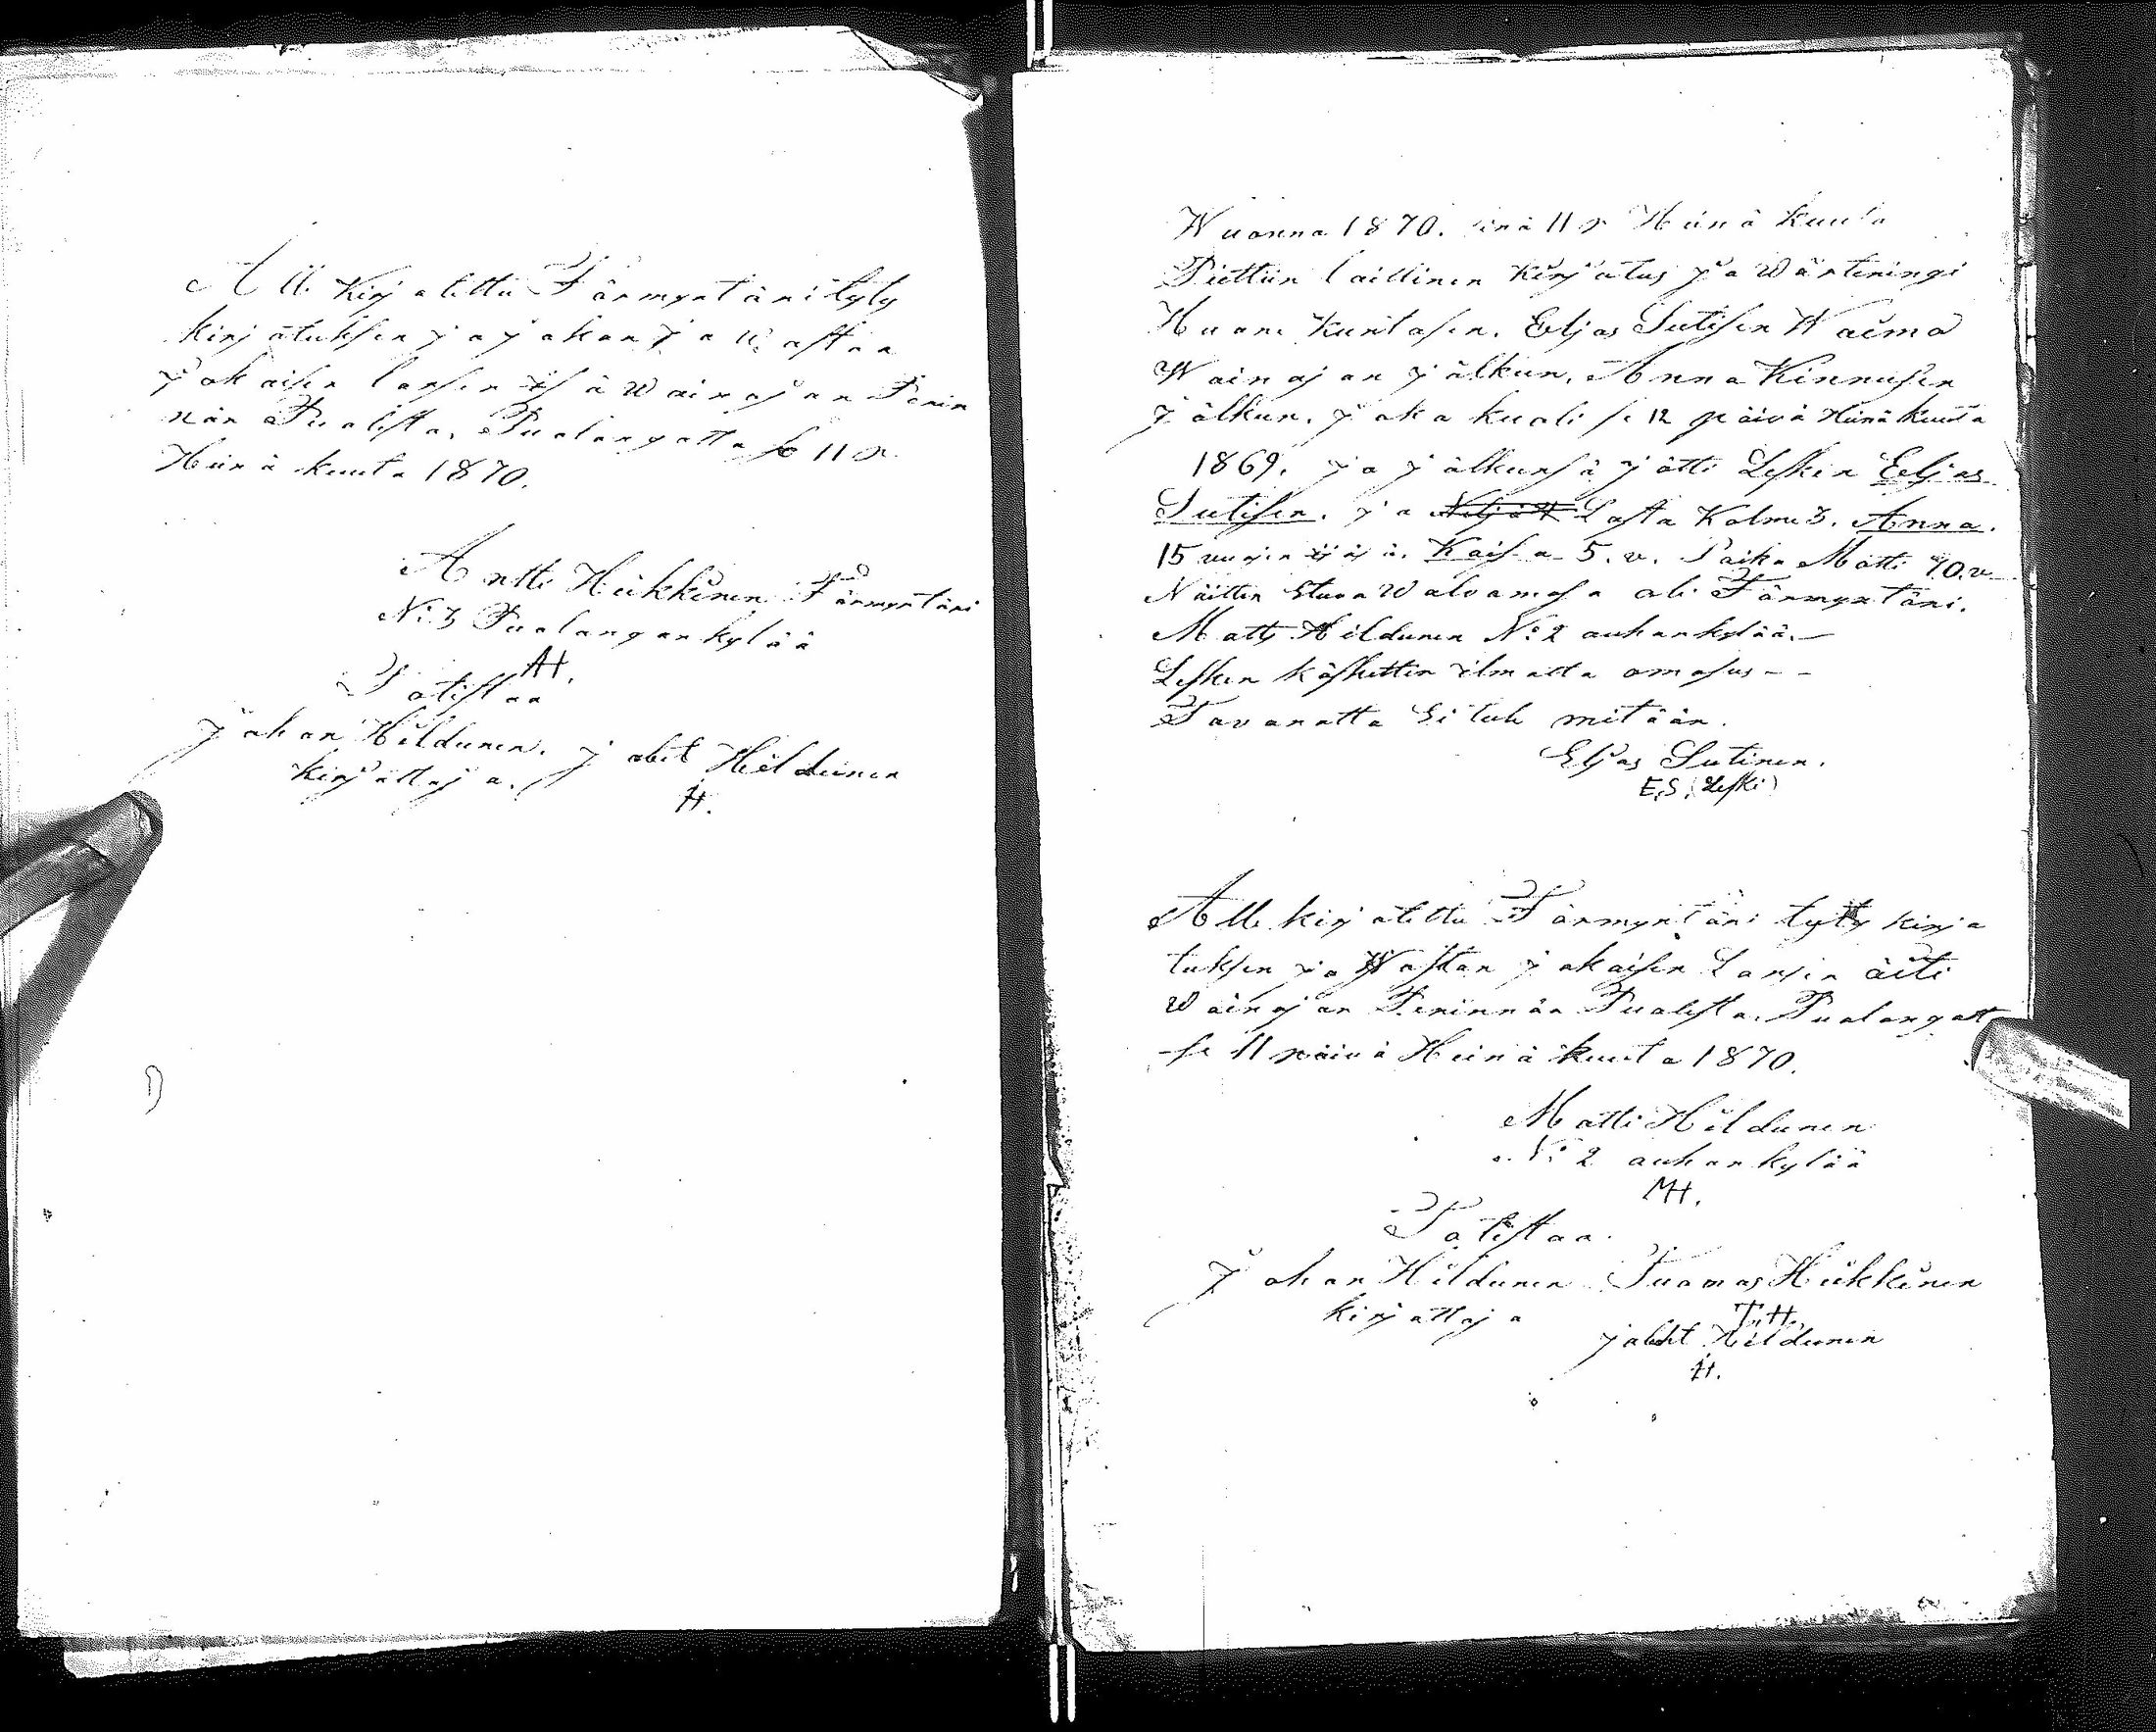 Alle Kirjotittu Färmyntäri tyty
kirjätuksen ja jakon ja Wastan
jokaisen lansen isä wainajan Perin
nän Puolista, Puolangatta se 11 p
Heinä kuuta 1870.
Antti Heikkinen Färmyntäri
No 3 Puolangan kylää
AH.
Totistaa
Johan Hildunen. jabet Hildeinen
kirjattaja. H.
Wuonna 1870. sinä 11 p Heinä Kuuta
Piettiin laillinen Kirjätus ja Wärteringi
Huone Kuntasen. Eljas Sutisen Waimo
Wainajan jälkun. Anna Kinnusen
jälkun. joka kuoli se 12 päivä Heinä Kuuta
1869. ja jälkunsä jätti Lesken Eeljas
Sutisen. ja Neljät Lasta Kolme 3. Anna.
15 vuojen ijäsä. Kaisa 5. v. Poika Matti 10. v
Näitten Etuva Walvomasa oli Färmyntäri.
Matti Hildunen No 2 auhonkylää.
Lesken käskettin ilmotta omasus - -
Tavaratta Ei tuh mitään.
Eljas Sutinen.
E,S, (Leski)
Alle kirjotittu Färmyntäri tyty kirja
tuksen ja Wastan jokaisen Lansen äiti
Wainajan Perinnän Puolista. Puolangatt
se 11 päivä Heinä kuuta 1870.
Matti Hildunen
No 2 auhonkylää
MH.
Totistaa.
Johan Hildunen Tuomas Heikkinen
kirjattaja T.H.
jabet Hildunen
H.